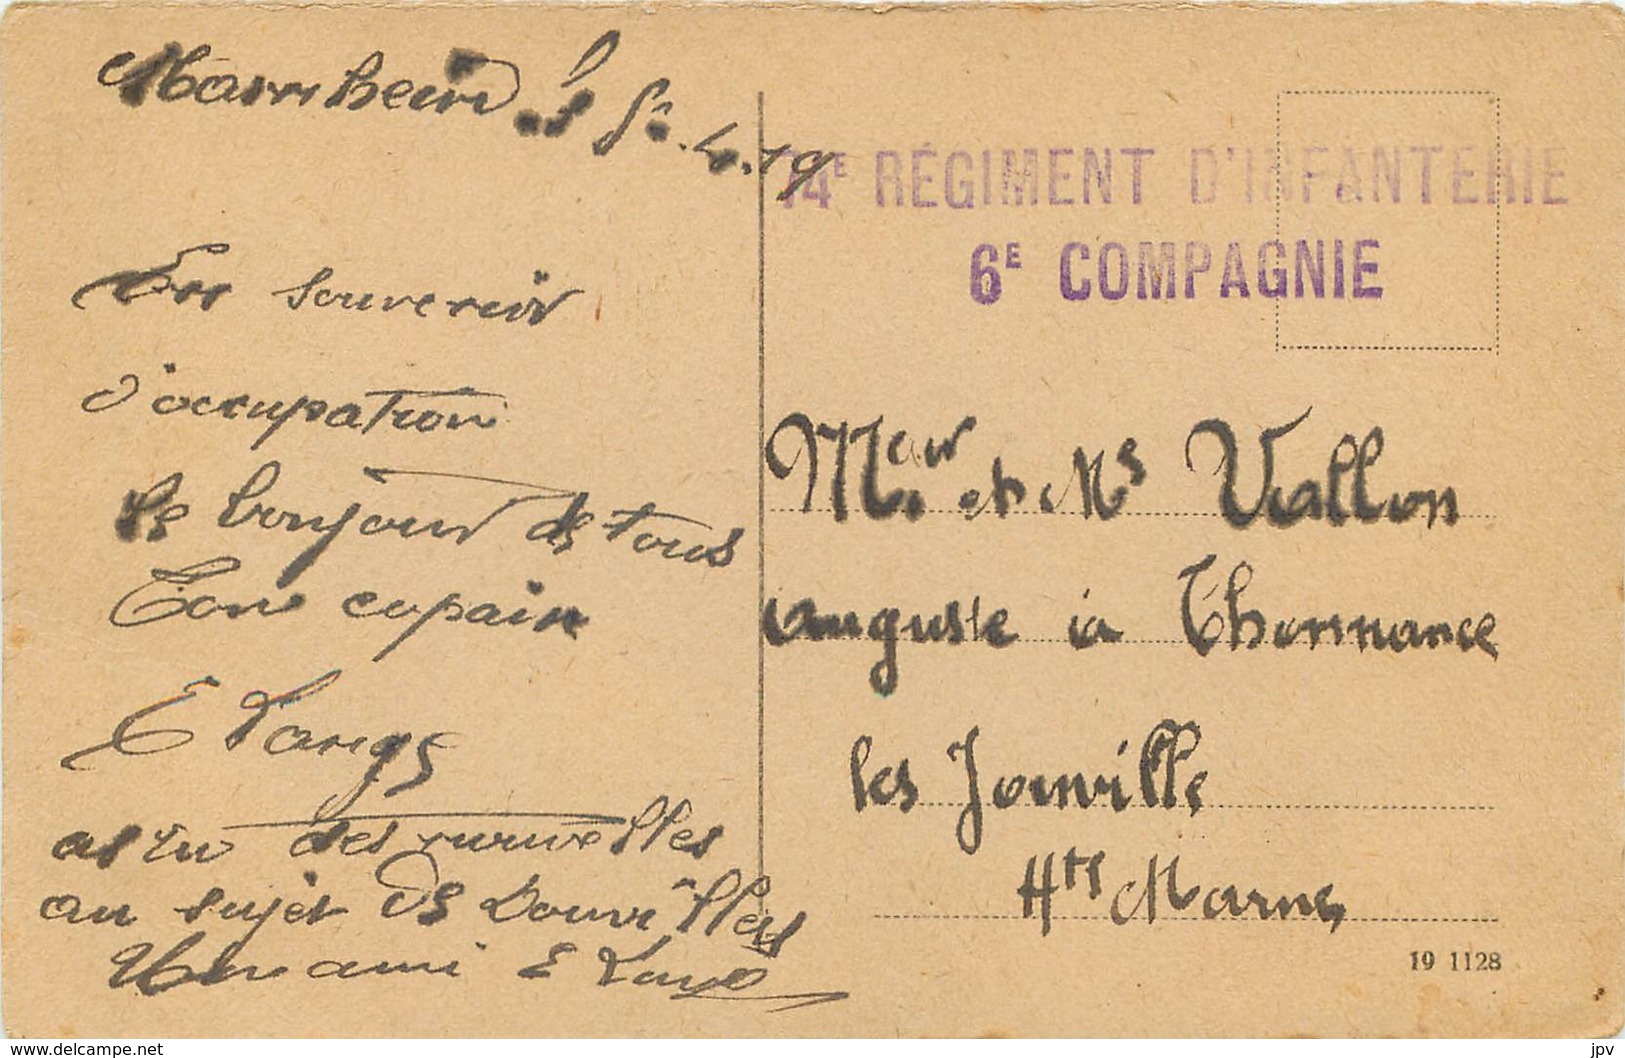 Marnheim le 5.4.19
En souvenir
d'occupation
le bonjour de tous
Ton copain
E
as tu des nouvelles
au sujet de
Un ami E
74E RÉGIMENT D'INFANTERIE
6E COMPAGNIE
et Vallon
auguste à Thonnance
les Joinville
Hte Marne
19 1128
www.delcampe.net
jpv